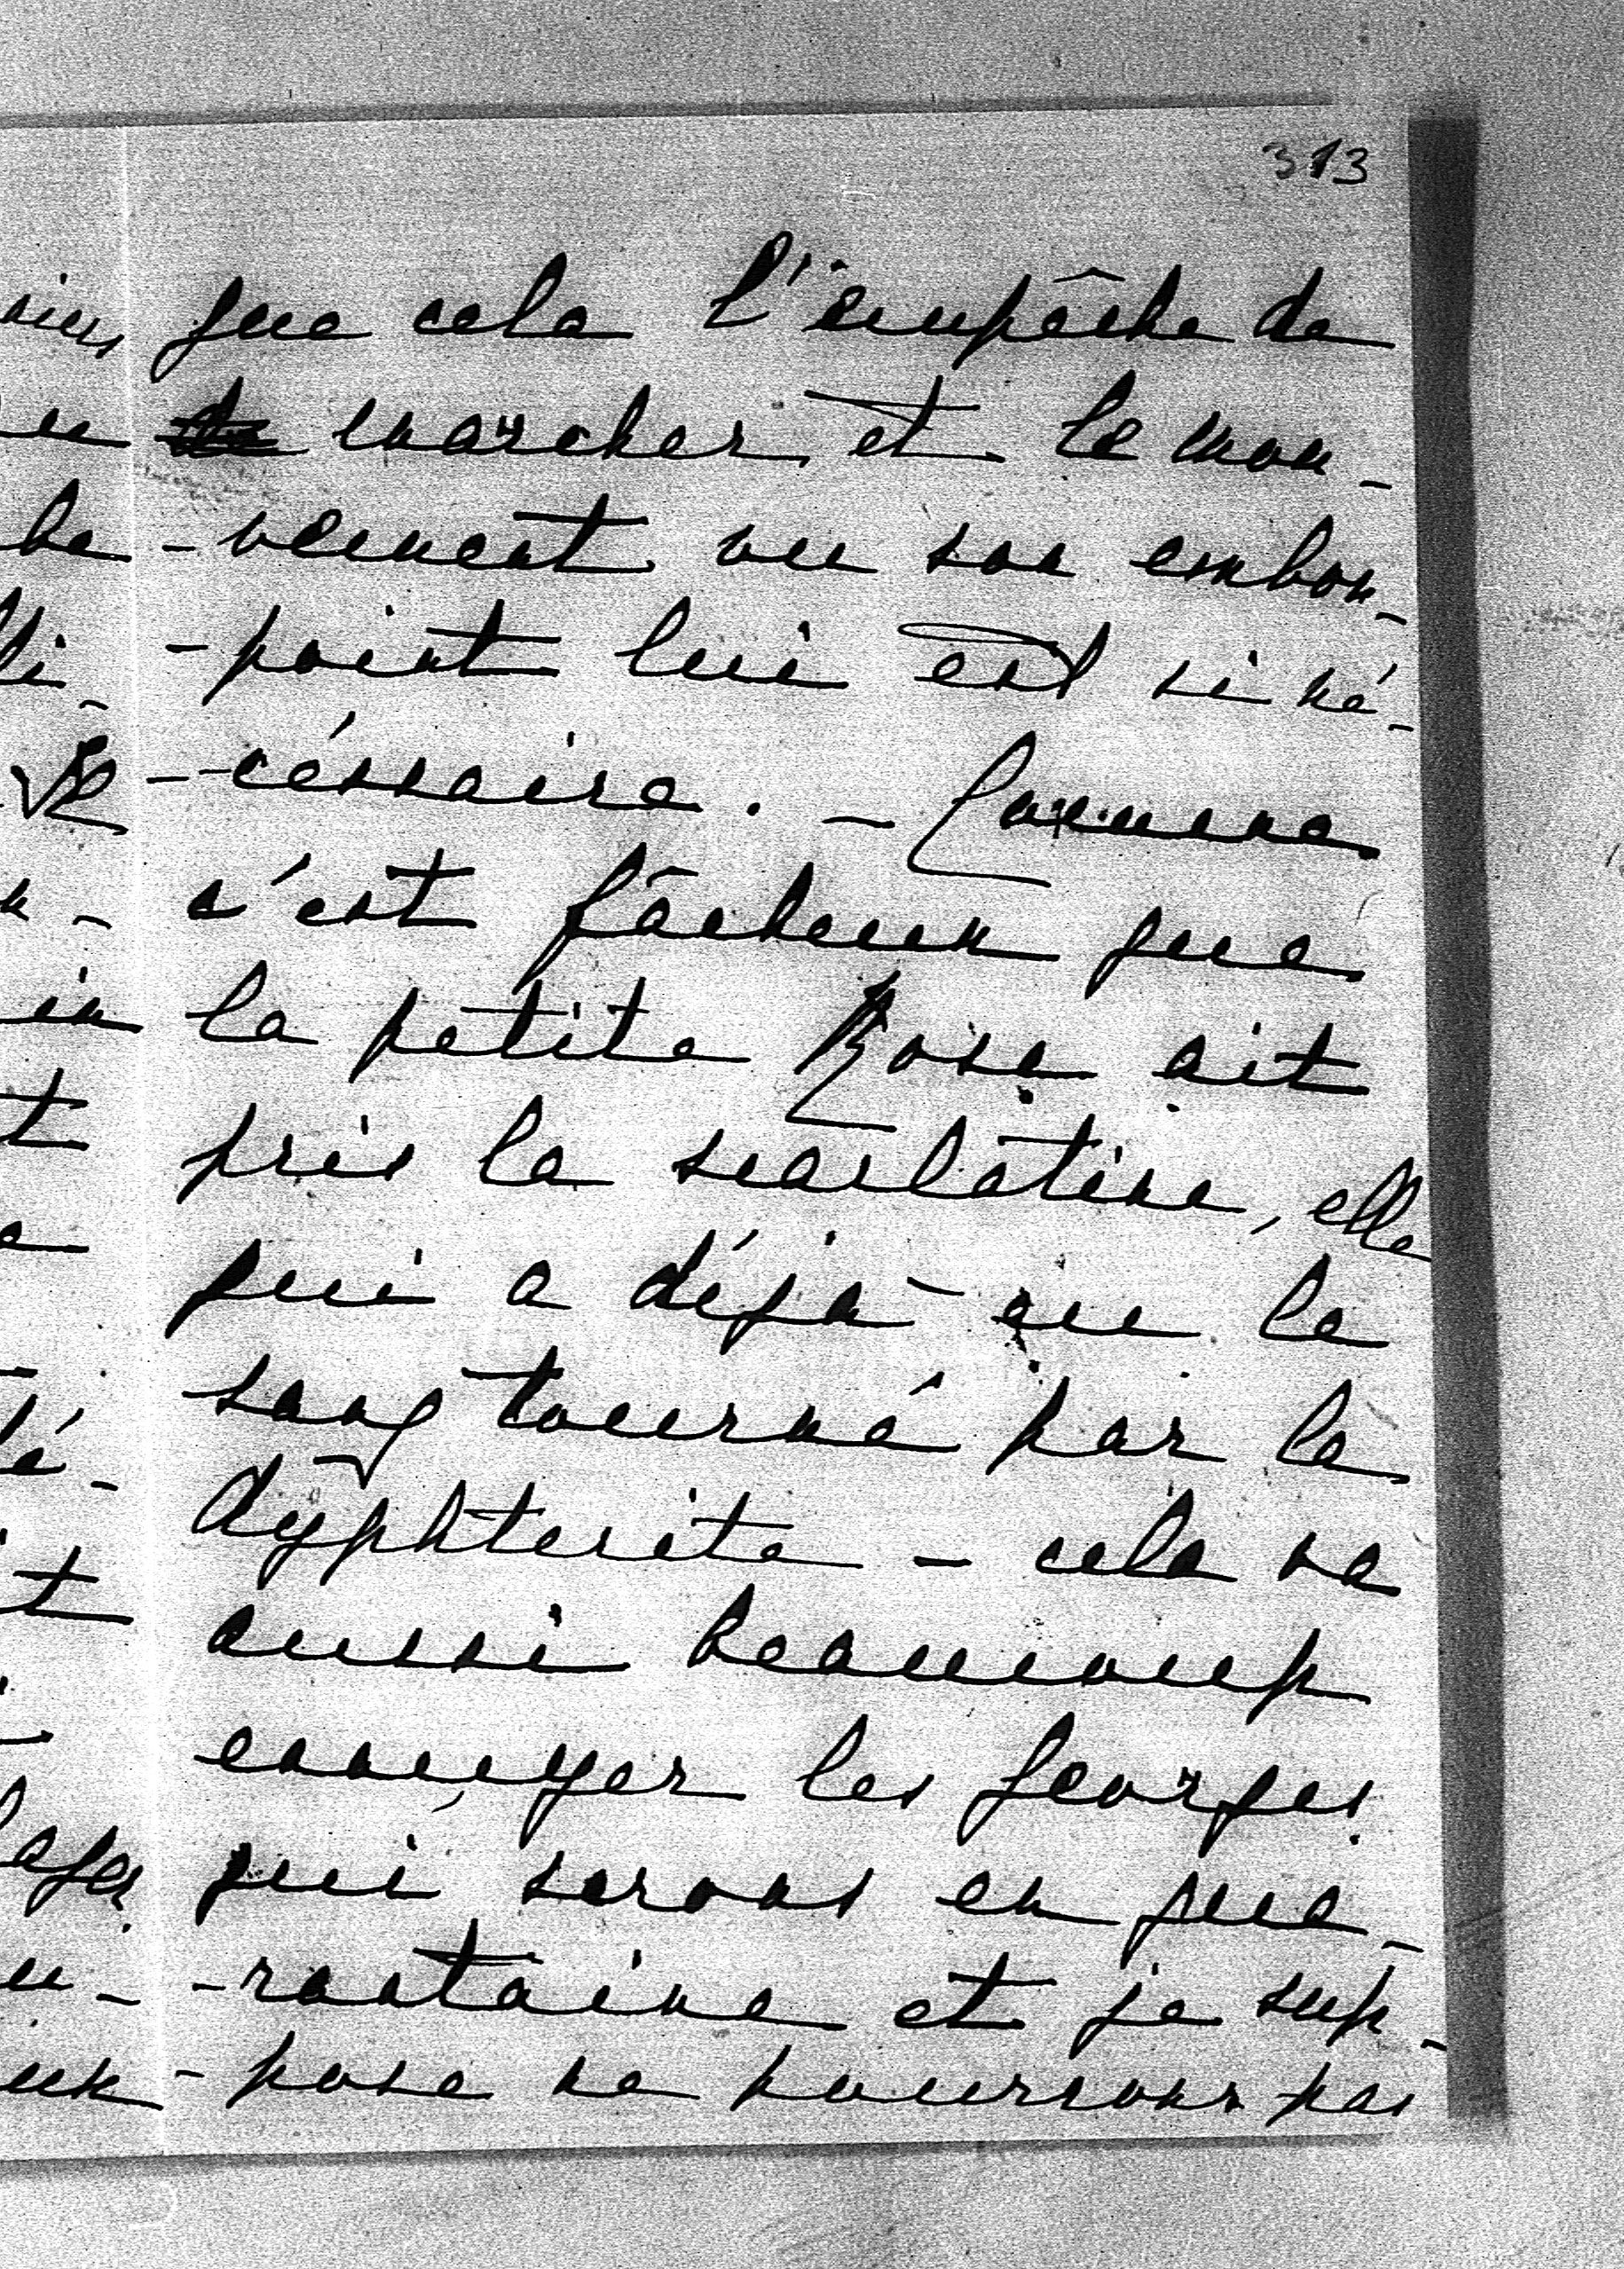 313
que cela l'empêche de
marcher et le mou-
-vement vu son embon-
-point lui est si né-
-céssaire. - Comme
c'est fâcheux que
la petite Rose ait
pris la scarlatine, elle
qui a déjà eu le
sang tourné par la
dyphterite - cela va
aussi beaucoup
ennuyer les Georges
qui seront en qua-
-rantaine et je sup-
-pose ne pourrons pas